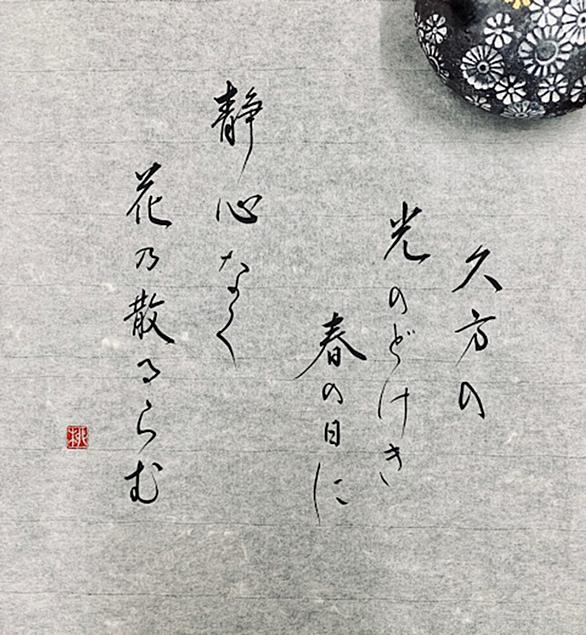 久方の
光のどけき
春の日に
静心なく
花乃散るらむ
桃